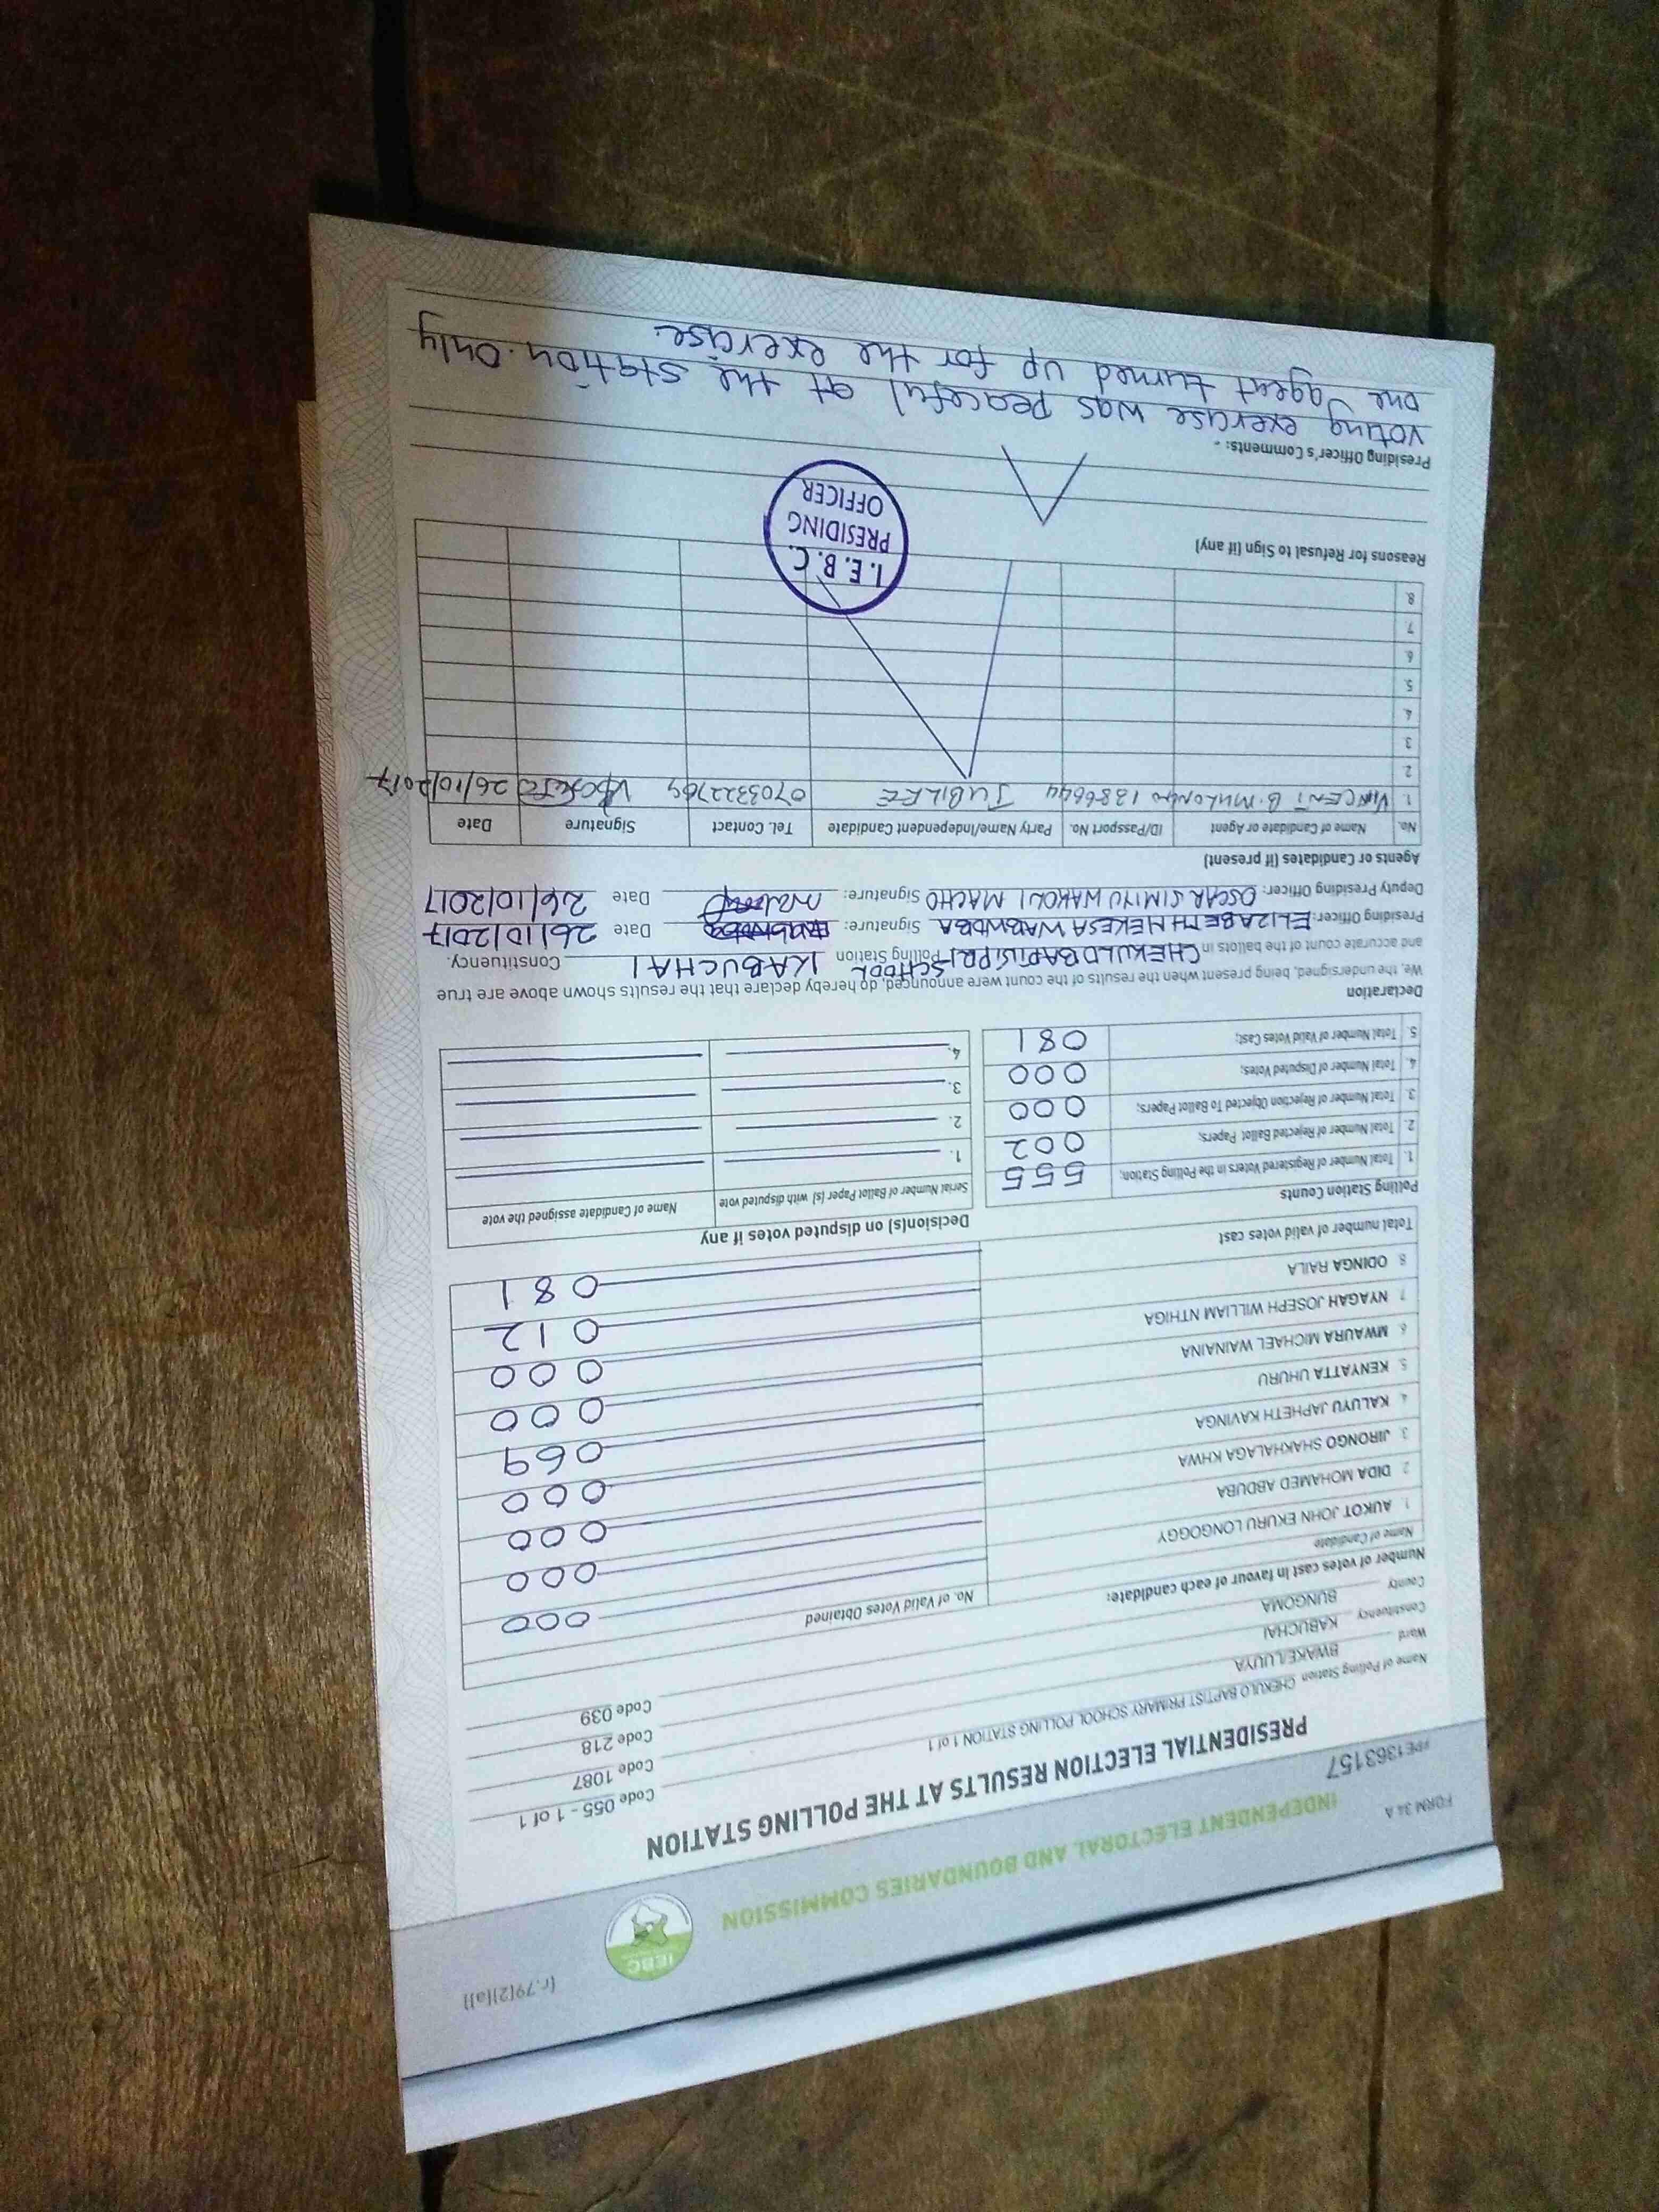 (r.79(2)(a))
IEBC
INDEPENDENT ELECTORAL AND BOUNDARIES COMMISSION
FORM 34 A
PE1363157
PRESIDENTIAL ELECTION RESULTS AT THE POLLING STATION
Name of Polling Station CHEKULO BAPTIST PRIMARY SCHOOL POLLING STATION 1 of 1 Code 055 - 1 of 1
Ward BWAKE/LUUYA Code 1087
Constituency KABUCHAI Code 218
County BUNGOMA Code 039
Number of votes cast in favour of each candidate:
Name of Candidate No. of Valid Votes Obtained
1. AUKOT JOHN EKURU LONGOGGY 000
2 DIDA MOHAMED ABDUBA 000
3. JIRONGO SHAKHALAGA KHWA 000
4 KALUYU JAPHETH KAVINGA 000
5. KENYATTA UHURU 069
6 MWAURA MICHAEL WAINAINA 000
7 NYAGAH JOSEPH WILLIAM NTHIGA 000
8. ODINGA RAILA 012
Total number of valid votes cast 081
Polling Station Counts
1. Total Number of Registered Voters in the Polling Station; 555
2. Total Number of Rejected Ballot Papers; 002
3. Total Number of Rejection Objected To Ballot Papers; 000
4. Total Number of Disputed Votes; 000
5. Total Number of Valid Votes Cast; 081
Decision(s) on disputed votes if any
Serial Number of Ballot Paper (s) with disputed vote Name of Candidate assigned the vote
1.
2.
3.
4.
Declaration
We, the undersigned, being present when the results of the count were announced, do hereby declare that the results shown above are true
and accurate count of the ballots in CHEKULO BAPTIST PRI SCHOOL Polling Station KABUCHAI Constituency.
Presiding Officer: ELIZABETH NEKESA WABWOBA Signature: Date 26/10/2017
Deputy Presiding Officer: OSCAR SIMIYU WAKOLI MACHO Signature: Date 26/10/2017
Agents or Candidates (if present)
No. Name of Candidate or Agent ID/Passport No. Party Name/Independent Candidate Tel. Contact Signature Date
1. VINCENT B. MULONGO 1386644 JUBILEE 26/10/2017
2
3
4.
5.
6.
7.
8.
Reasons for Refusal to Sign (if any)
I.E.B.C.
PRESIDING
OFFICER
Presiding Officer's Comments: -
voting exercise was peaceful at the station. Only
one agent turned up for the exercise.